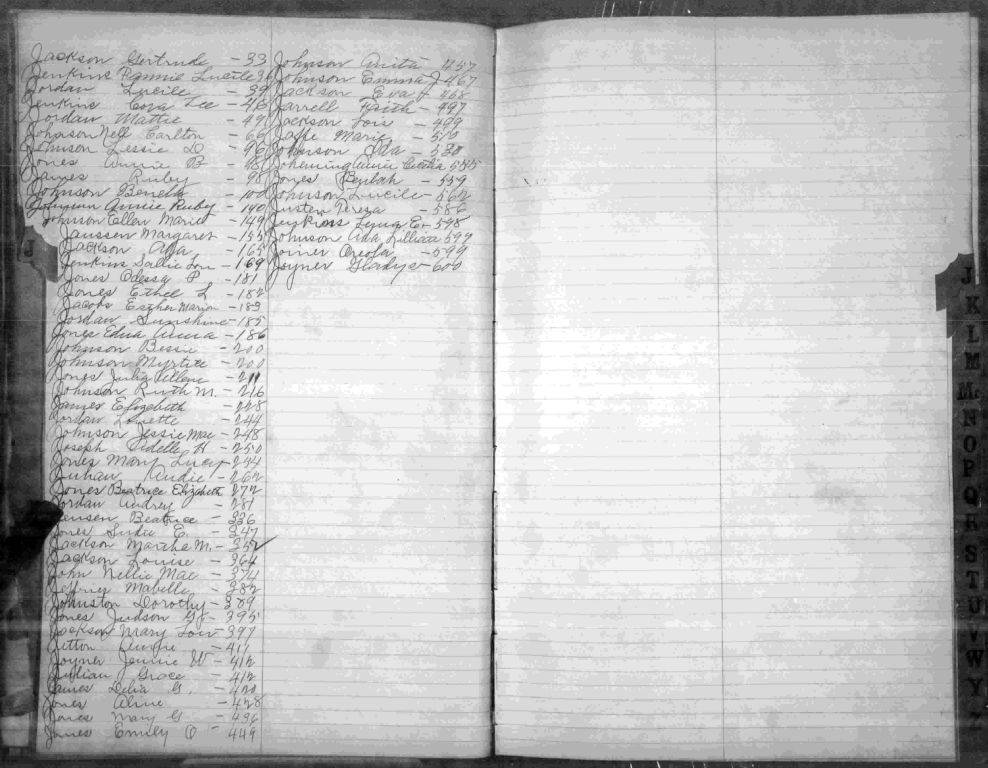 Jackson Gertrude - 33
Jenkins Fannie Lucile 36
Jordan Lucile - 39
Jenkins Cora Lee - 46
Jordan Mattie - 49
Johnson Nell Carlton - 66
Johnson Lessie D - 96
Jones Annie B - 98
James Ruby - 98
Johnson Beneta
Johnson Annie Ruby - 140
Johnson Ellen Marie - 149
Janssen Margaret - 155
Jackson Ada - 165
Jenkins Sallie Lou - 169
Jones Odessa P - 181
Jones Ethel L - 182
Jacobs Esther Marion - 183
Jordan Sunshine - 185
Jones Edna Anna - 186
Johnson Bessie - 200
Johnson Myrtice - 200
Jones Julia - 211
Johnson Ruth M. - 216
James Elizabeth - 228
Jordan Louette - 244
Johnson Jessie Mae - 248
Joseph Adelle H - 250
Jones Mary Lucy - 254
Juhan Audie - 262
Jones Beatrice Elizabeth 272
Jordan Audrey - 281
Jensen Beatrice - 336
Jones Susie E. - 347
Jackson Martha M. - 352 ✓
Jackson Louise - 364
John Nellie Mae - 374
Jeffrey Mabelle - 382
Johnston Dorothy - 389
Jones Judson - 395
Jackson Mary Lou - 397
- 411
Joyner Jennie W - 412
Jullian J Grace - 412
James Delia G. - 420
Jones Aline - 428
Jones Mary G - 436
Jones Emily O - 449
Johnson Anita - 457
Johnson Emma J - 467
Jackson Eva - 468
Jarrell Faith - 497
Jackson Lois - 499
Marie - 519
Johnson Ida - 530
Annie Cecelia 535
Jones Beulah - 539
Johnson Lucile - 562
Justen Tereza - 586
Lyna E - 598
Johnson Ada Lillian 597
Joiner Oreola - 599
Joyner Gladys - 600
J
J
K
L
M
Mc
N
O
P
Q
R
S
T
U
V
W
Y
Z